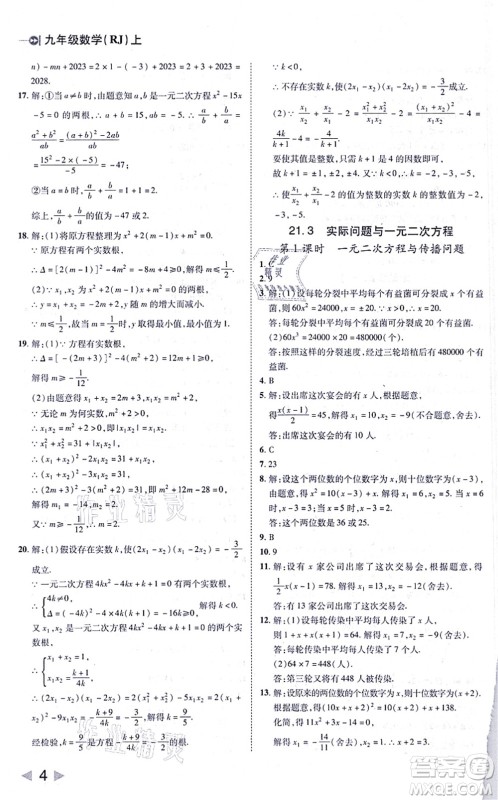 九年级数学(RJ)上
n)-mn+2023=2×(-5)-(-5)+2023=2-
2028.
17. 解:①当a≠b时,由题意知a,b是一元二次方程x²-15x
-5=0的两根,∴a+b=15,ab=-5,∴a/b+b/a=
(a²+b²)/ab=((a+b)²-2ab)/ab
=(15²-2×(-5))/-5=-47;
②当a=b时,a/b+b/a=1+1=2.
综上,a/b+b/a的值为-47或2.
18. 解:(1)将原方程整理为x²+2(m-1)x+m²=0.
∵原方程有两个实数根,
∴Δ=[2(m-1)]²-4m²=-8m+4≥0,∴m≤1/2;
(2)∵x₁,x₂为x²+2(m-1)x+m²=0的两根,
∴y=x₁+x₂=-2m+2,且m≤1/2.
因而当m=1/2时,y取得最小值,最小值为1.
19. 解:(1)∵方程有实数根,
∴Δ=[-(2m+3)]²-4(m²+2)=12m+1≥0.
解得m≥-1/12;
(2)由题意得x₁+x₂=2m+3,x₁x₂=m²+2,
∵无论m为何实数,m²+2>0,
∵x₁²+x₂²=31+|x₁x₂|,
∴(x₁+x₂)²-2x₁x₂=31+|x₁x₂|,
∴(2m+3)²-2(m²+2)=31+m²+2,
整理得m²+12m-28=0,解得m₁=2,m₂=-14.
又∵m≥-1/12,∴m=2.
20. 解:(1)假设存在实数k,使(2x₁-x₂)(x₁-2x₂)=-3/2
成立.
∵一元二次方程4kx²-4kx+k+1=0有两个实数根,
∴{4k≠0,
Δ=(-4k)²-4×4k(k+1)=-16k≥0,
∴k<0.
∵x₁,x₂是一元二次方程4kx²-4kx+k+1=0的两个实数
根,∴{x₁+x₂=1,
x₁x₂=(k+1)/4k.
∴(2x₁-x₂)(x₁-2x₂)=2(x₁+x₂)²-9x₁x₂=
-(k+9)/4k.又∵(2x₁-x₂)(x₁-2x₂)=-3/2,
∴-(k+9)/4k=-3/2,∴k=9/5.
经检验,k=9/5是该方程的根.
4
∵k<0,
∴不存在实数k,使(2x₁-x₂)(x₁-2x₂)=-3/2成立;
(2)∵x₁/x₂+x₂/x₁-2=(x₁²+x₂²)/x₁x₂-2=(x₁+x₂)²/x₁x₂-4=
4k/(k+1)-4=-4/(k+1).
要使其值是整数,只需k+1能被4整除,
∴k+1=±1,±2,±4.∵k<0,∴k=-2,-3,-5.
∴使x₁/x₂+x₂/x₁-2的值为整数的实数k的整数值为-2,
-3,-5.
21.3 实际问题与一元二次方程
第1课时 一元二次方程与传播问题
1. C
2. 9
3. 解:(1)设每轮分裂中平均每个有益菌可分裂出x个有益菌,
由题意,得60(1+x)²=24000,
解得x₁=19,x₂=-21(不合题意,舍去).
答:每轮分裂中平均每个有益菌可分裂出19个有益菌;
(2)24000×(1+19)=480000(个).
答:按照这样的分裂速度,经过三轮培植后有480000个有
益菌.
4. B
5. 解:设出席这次宴会的有x人,由题意,
得x(x-1)/2=45,解得x₁=10,x₂=-9(不合题意,舍去).
答:出席这次宴会的有10人.
6. C
7. 23
8. 解:设这个两位数的个位数字为x,则十位数字为(x-3),
由题意,得x²=10(x-3)+x,解得x₁=6,x₂=5,
当x=6时,x-3=3;当x=5时,x-3=2.
答:这个两位数是36或25.
9. B
10. 9
11. 解:设有x家公司出席了这次交易会,根据题意,得
1/2x(x-1)=78.解得x₁=13,x₂=-12(舍去).
答:有13家公司出席了这次交易会.
12. 解:(1)设每轮传染中平均每人传染了x人,
则1+x+x(x+1)=64,解得x₁=7,x₂=-9(舍去).
答:每轮传染中平均每人传染了7人;
(2)64×7=448(人).
答:第三轮又将有448人被传染.
13. 解:设原来的两位数的十位数字为x,则个位数字为(x+2).
根据题意,得(10x+x+2)²=10(x+2)+x+138.
化简,得11x²+3x-14=0.解得x₁=1,x₂=-14/11(舍去).
作业精灵